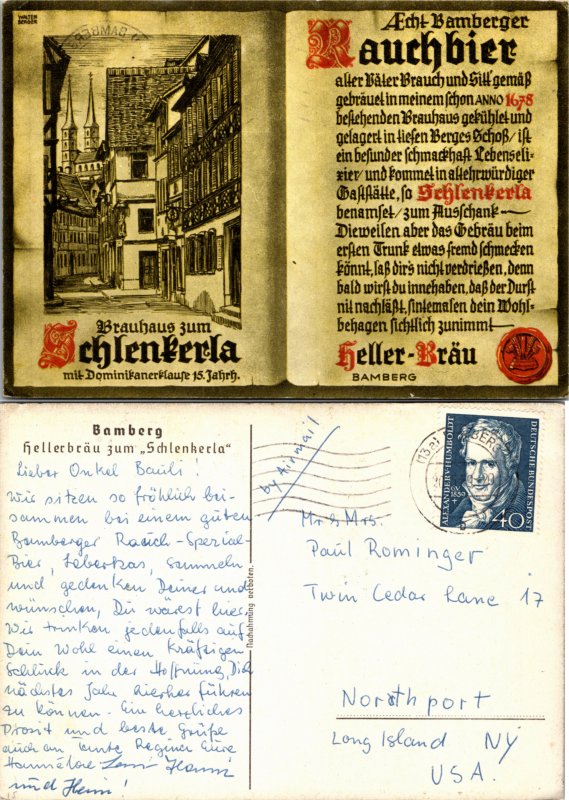 WALTER
BERGER
Æcht Bamberger
Rauchbier
alter Väter Brauch und Sitt' gemäß
gebräuet in meinem schon ANNO 1678
bestehenden Brauhaus gekühlet und
gelagert in tiefen Berges Schoß/ ist
ein besunder schmackhaft Lebenseli-
xier/ und kommet in altehrwürdiger
Gaststätte, so Schlenkerla
benamset/ zum Ausschank—
Dieweilen aber das Gebräu beim
ersten Trunk etwas fremd schmecken
könnt, laß dir's nicht verdrießen, denn
bald wirst du innehaben, daß der Durst
nit nachläßt, sintemalen dein Wohl-
behagen sichtlich zunimmt
Heller-Bräu
BAMBERG
Brauhaus zum
Schlenkerla
mit Dominikanerklause 15. Jahrh.
Bamberg
Hellerbräu zum „Schlenkerla"
Lieber Onkel Bauli!
Wir sitzen so fröhlich bei-
sammen bei einem guten
Bamberger Rauch-Spezial-
Bier, Leberkäs, Semmeln
und gedenken Deiner und
wünschen, Du wärest hier.
Wir trinken jedenfalls auf
Dein Wohl einen kräftigen
Schluck in der Hoffnung, Dich
nächstes Jahr hierher führen
zu können. Ein herzliches
Prosit und beste Grüße
auch an Tante Regina Eure
Hannelore
und Heini!
Nachahmung verboten.
by Airmail
(13a) BAMBERG
ALEXANDER V. HUMBOLDT
DEUTSCHE BUNDESPOST
1859
40
Mr & Mrs.
Paul Rominger
Twin Cedar Lane 17
Northport
Long Island NY
USA.